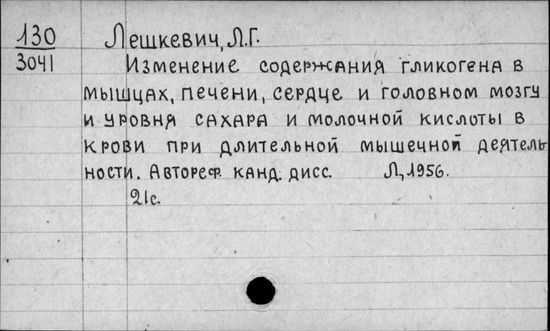 130 Лешкевич, Л.Г.
3041 Изменение содержания гликогена в
мышцах, печени, сердце и головном мозгу
и уровня сахара и молочной кислоты в
крови при длительной мышечной деятель
ности. Автореф. канд. дисс. Л, 1956.
21с.